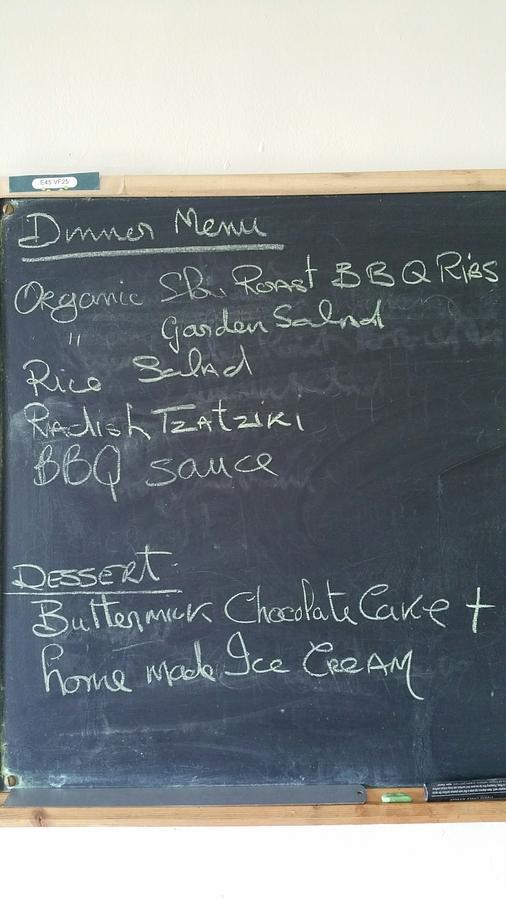 E45 VF25
Dinner Menu
Organic Slow Roast BBQ Ribs
" Garden Salad
Rice Salad
Radish Tzatziki
BBQ sauce
DESSERT
Buttermilk Chocolate Cake +
home made Ice CREAM